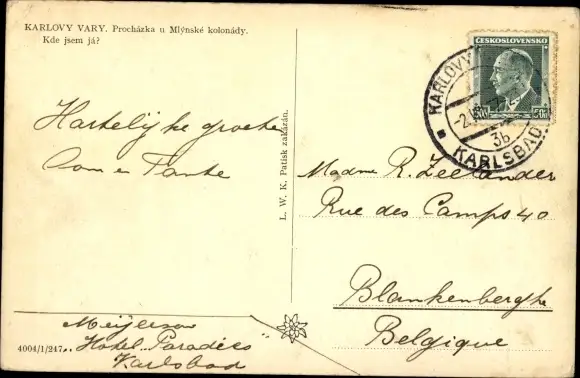 KARLOVY VARY. Procházka u Mlýnské kolonády.
Kde jsem já?
ČESKOSLOVENSKO
KARLOVY
3b
KARLSBAD
Hartelijke groeten
Oom en Tante
L. W. K. Patisk zakázán.
Madme R. Zeelander
Rue des Camps 40
Blankenberghe
Belgique
Meijerson
Hotel "Paradies"
Karlsbad
4004/1/247